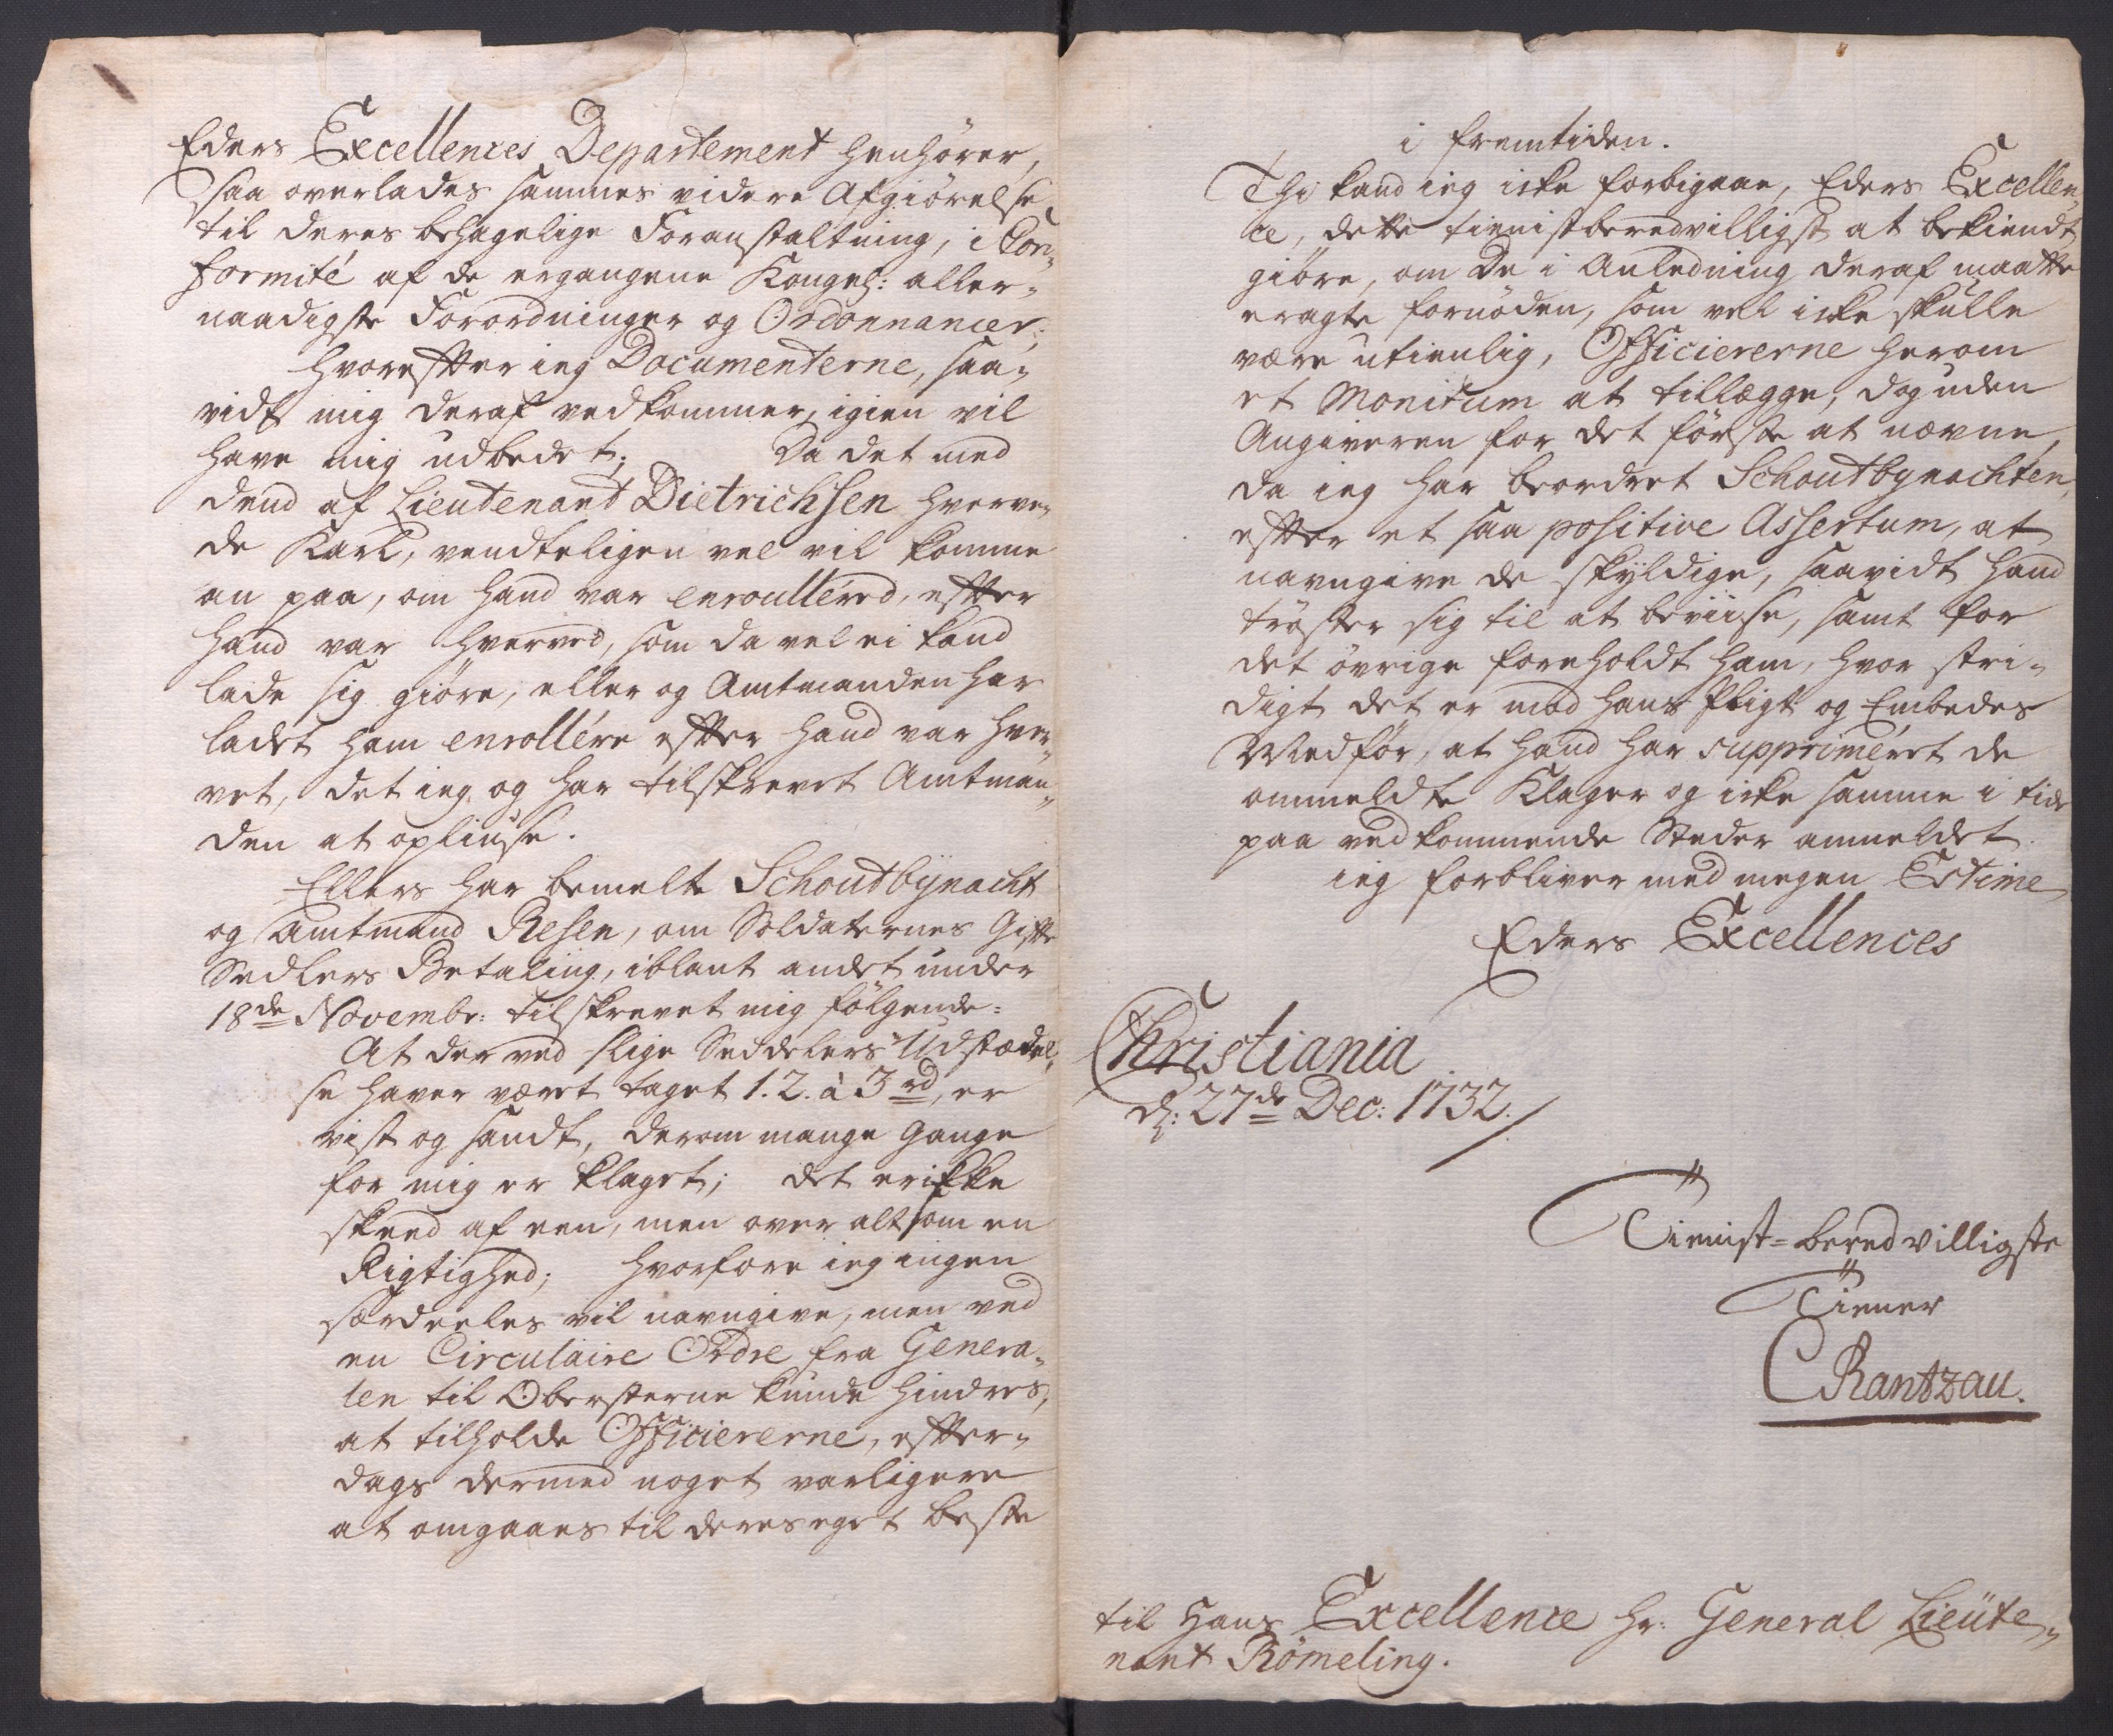 Eders Excellences Departement henhörer,
saa overlades sammes videre Afgiörelse
til deres behagelige Foranstaltning, i Con-
formité af de ergangene Kongel: aller-
naadigste Forordninger og Ordonnancer;
hvorefter ieg Documenterne, saa-
vidt mig deraf vedkommer, igien vil
have mig udbedet; Da det med
dend af Lieutenant Dietrichsen hverve-
de Karl, vendteligen vel vil komme
an paa, om hand var enroulléred, efter
hand var hverved, som da vel ei kand
lade sig giöre, eller og Amtmanden har
ladet ham enrollére efter hand var hver-
vet, det ieg og har tilskrevet Amtman-
den at opliuse.
Ellers har bemelte Schoutbynacht
og Amtmand Resen, om Soldaternes Gifte
Sedlers Betaling, iblant andet under
18de Novembr: tilskrevet mig fölgende:
At der ved slige Seddelers Udstædel-
se haver været taget 1. 2. à 3 rd, er
vist og sandt, derom mange Gange
for mig er klaget; det er ikke
skeed af een, men over alt som en
Rigtighed; hvorfore ieg ingen
særdeeles vil navngive, men ved
en Circulaire Ordre fra Genera-
len til Obersterne kunde hindres,
at tilholde Officiererne, efter-
dags dermed noget varligere
at omgaaes til deres eget beste
i fremtiden.
Thi kand ieg icke forbigaae, Eders Excellen-
ce, dette tienistberedvilligst at bekiendt
giöre, om De i Anledning deraf maatte
eragte fornöden, som vel icke skulle
være utienlig, Officiererne herom
et Monitum at tillægge, dog uden
Angiveren for det förste at nævne,
da ieg har beordret Schoutbynachten,
efter et saa positive Assertum, at
navngive de skyldige, saavidt hand
tröster sig til at beviise, samt for
det övrige foreholdt ham, hvor stri-
digt det er mod hans Pligt og Embedes
Medför, at hand har suppriméret de
ommeldte Klager og icke samme i tide
paa vedkommende Steder anmeldet.
ieg forbliver med megen Estime
Eders Excellences
Christiania
d: 27de Dec: 1732.
Tienist-beredvilligste
Tiener
CRantzau.
til Hans Excellence Hr: General Lieute-
nant Römeling.